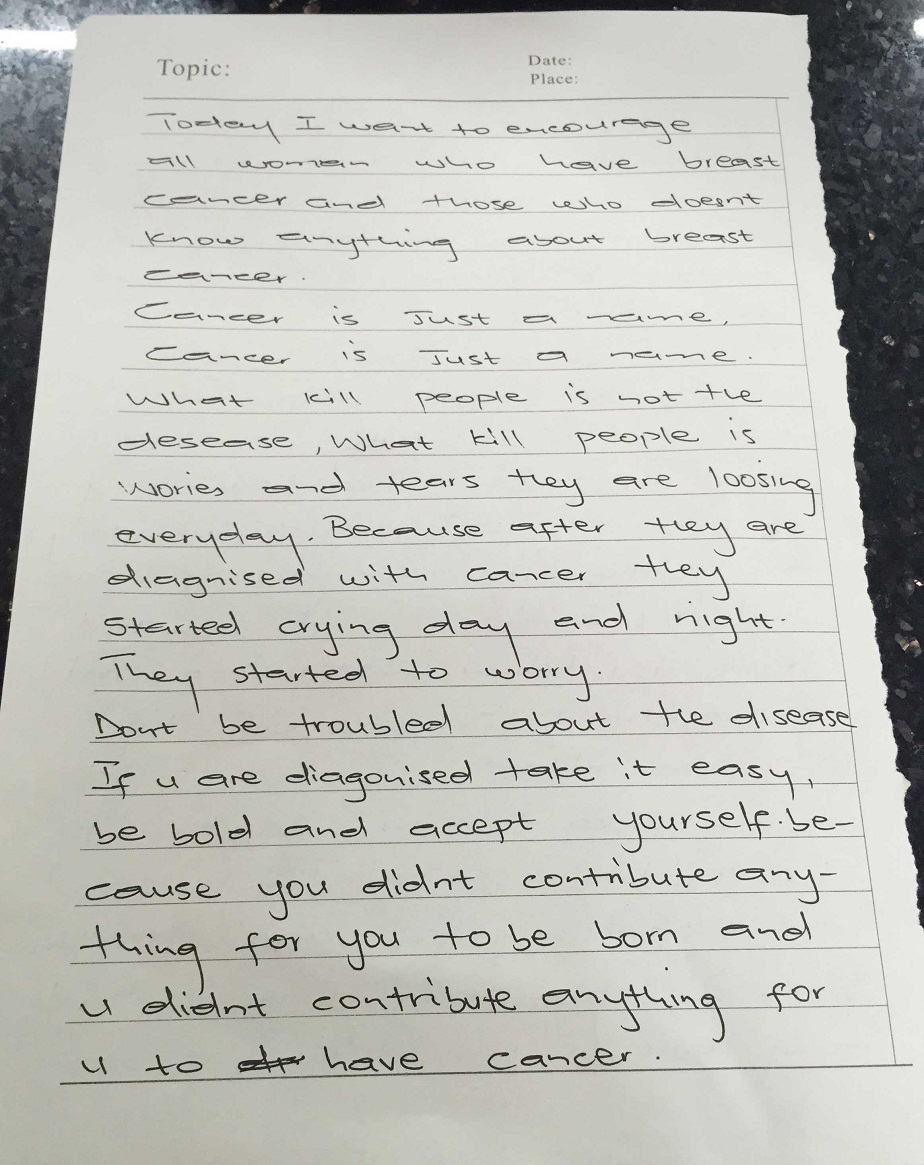 Topic:
Date:
Place:
Today I want to encourage
all woman who have breast
cancer and those who doesnt
know anything about breast
cancer.
Cancer is Just a name,
Cancer is Just a name.
What kill people is not the
desease, What kill people is
Wories and tears they are loosing
everyday. Because after they are
diagnised with cancer they
started crying day and night.
They started to worry.
Dont be troubled about the disease
If u are diagonised take it easy,
be bold and accept yourself. be-
cause you didnt contribute any-
thing for you to be born and
u didnt contribute anything for
u to have cancer.